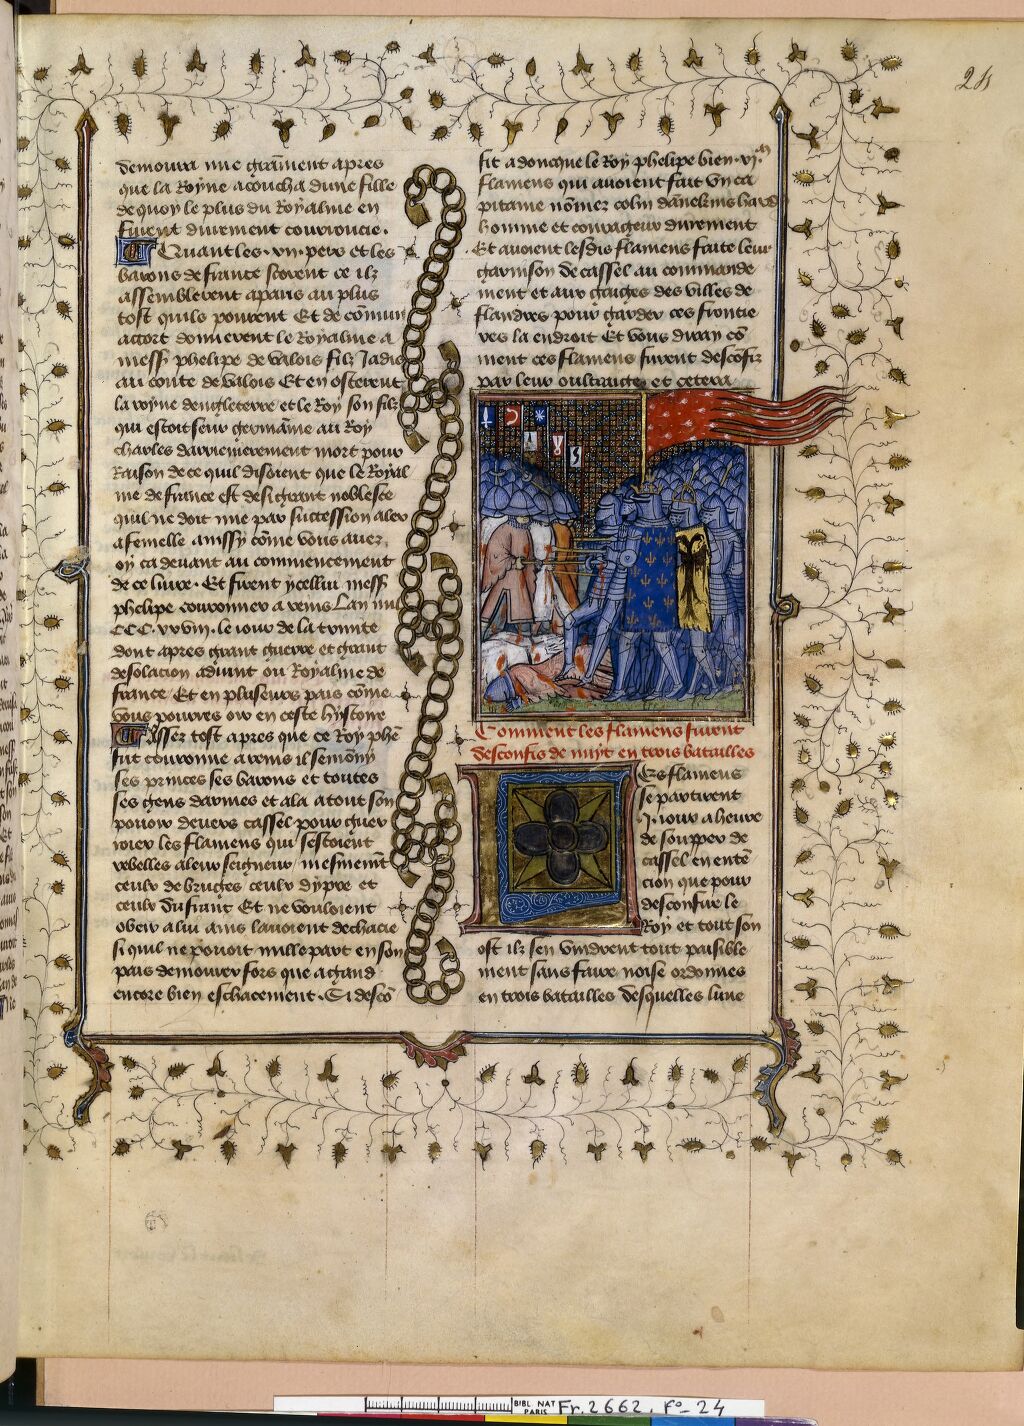 24
demoura mie grament apres
que la Royne acoucha dune fille
de quoy le plus du Royalme en
furent durement courroucie.
Quant les .xij. pers et les
barons de france seurent ce ilz
assemblerent a paris au plus
tost quilz pourent Et de cōmun
acort donnerent le Royalme a
mess phelipe de valois filz Jadis
au conte de valois Et en osterent
la royne dengleterre et le Roy son filz
qui estoit seur germainne au Roy
charles darrienierement mort pour
Raison de ce quil disoient que le Royal
me de france est de si grant noblesce
quil ne doit mie par succession aler
a femelle aussy cōme vous avez
oy ca devant au commencement
de ce livre. Et firent ycellui mess
phelipe couronner a reins Lan mil
CCC. xxviij. le iour de la trinite
dont apres grant guerre et grant
desolacion advint ou Royalme de
france Et en pluseurs pais cōme
vous pourres oir en ceste hystoire
Assez tost apres que ce Roy phē
fut couronne a reins il semony
ses princes ses barons et toutes
ses gens darmes et ala a tout son
pouoir devers cassel pour guer
roier les flamens qui sestoient
rebelles a leur seigneur mesmemt
ceulx de bruges ceulx dyppre et
ceulx du franc Et ne vouloient
obeir a lui ains lavoient dechacie
si quil ne pouoit nulle part en son
pais demourer fors que a gand
encore bien eschacement. Si descō
fit adoncque le Roy phelipe bien .xvj.m
flamens qui avoient fait vn ca
pitaine nōmer colin dānekins hardi
homme et courageux durement
Et avoient lesdis flamens faite leur
garnison de cassel au commande
ment et aux gaiges des villes de
flandres pour garder ces frontie
res la endroit Et vous diray cō
ment ces flamens furent descōfiz
par leur oultraige et cetera
Comment les flamens furent
desconfis de nuyt en trois batailles
Ces flamens
se partirent
.j. iour a heure
de soupper de
cassel en entē
cion que pour
desconfire le
Roy et tout son
ost ilz sen vindrent tout paisible
ment sans faire noise ordonnes
en trois batailles desquelles lune
BIBL. NAT
PARIS
Fr. 2662. fo- 24